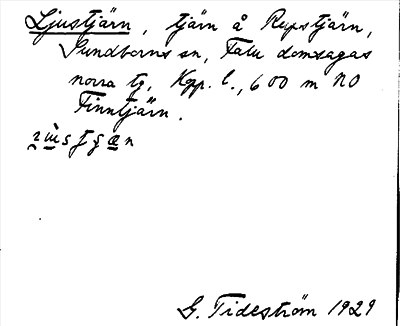 Ljustjärn, tjärn å Rupstjärn,
Sundborns sn, Falu domsagas
norra tg, Kpp. l., 600 m NO
Finntjärn.
G. Tideström 1929